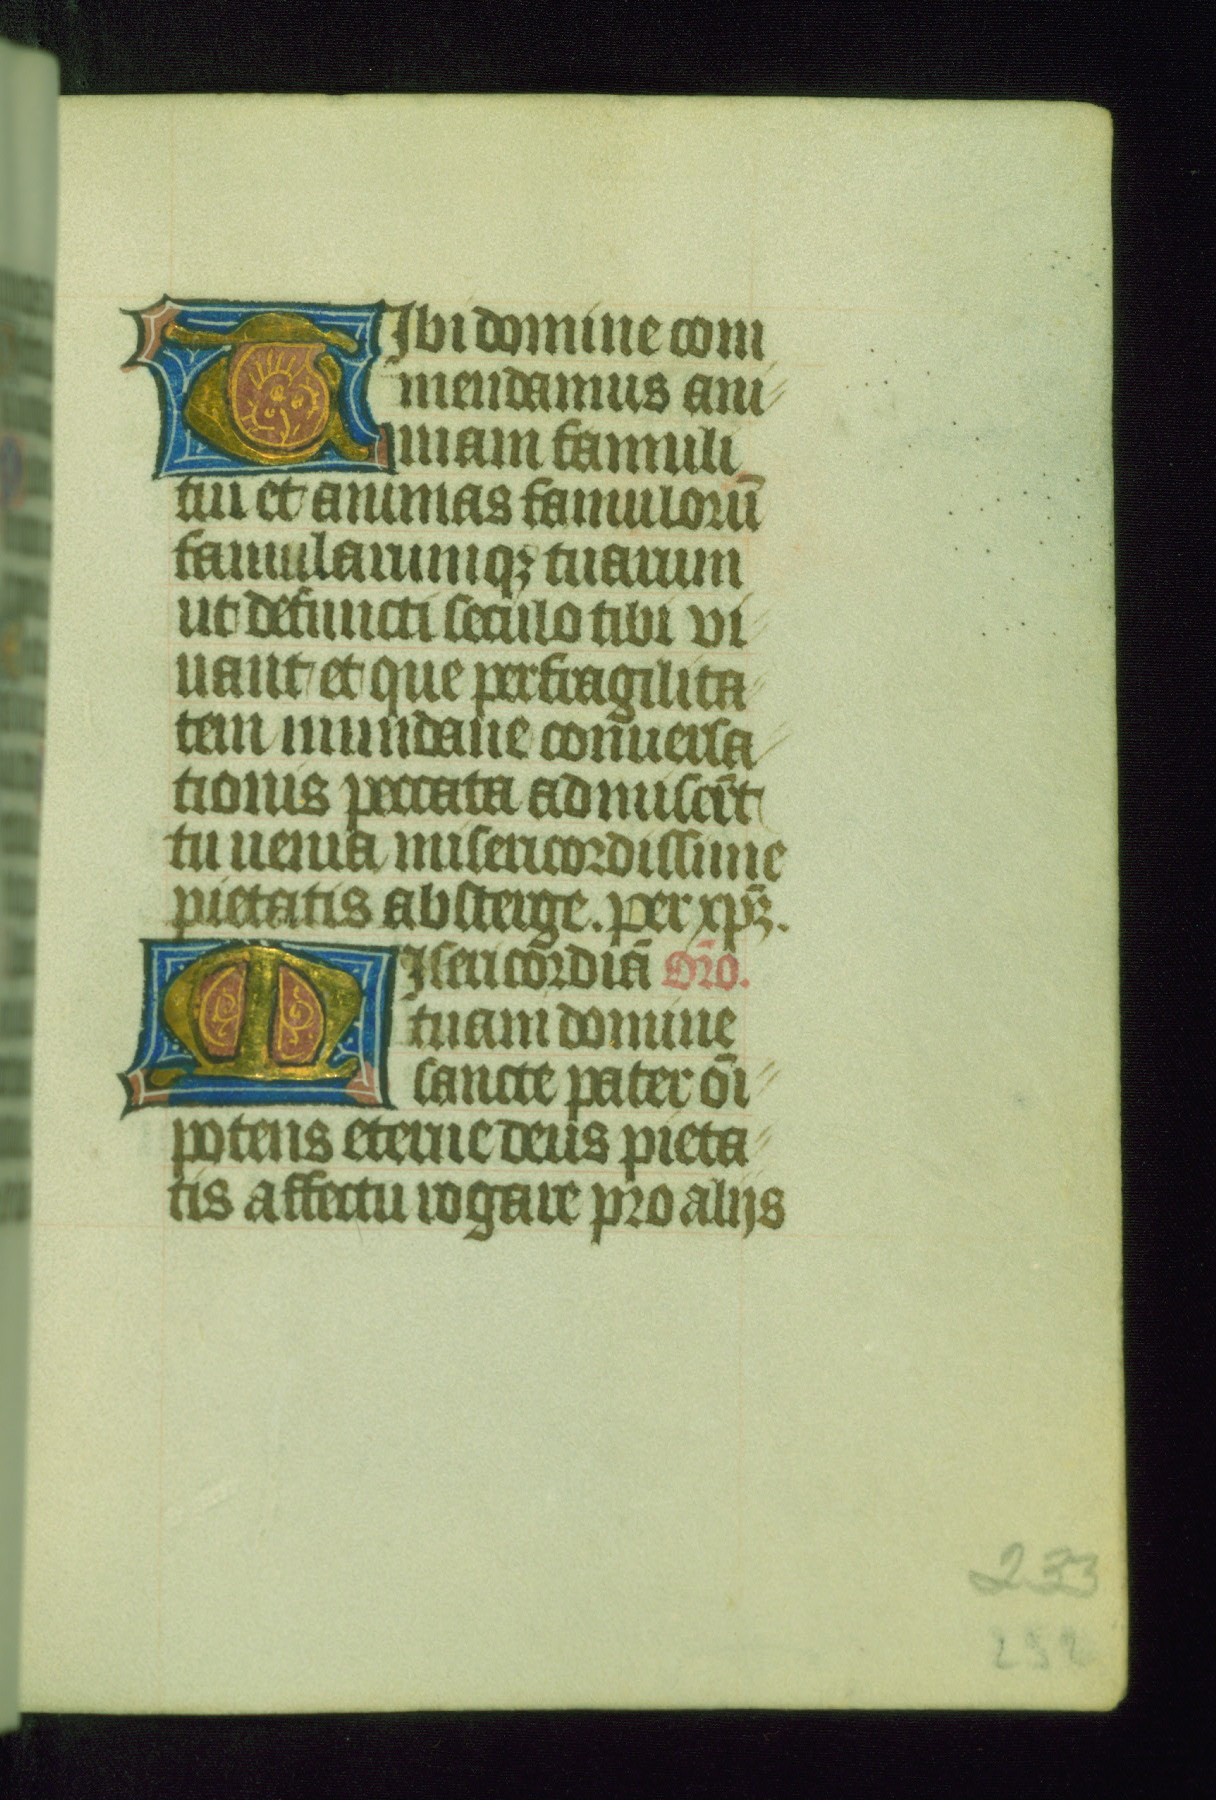 TIbi domine com
mendamus ani
mam famuli
tui et animas famulorū
famularumqꝫ tuarum
ut defuncti seculo tibi vi
uant et que per fragilita
tem mundane conuersa
tionis peccata admiscēt
tu uenia misericordissime
pietatis absterge. per xp̄ꝫ.
MIsericordiā or̄o.
tuam domine
sancte pater ōi
potens eterne deus pieta
tis affectu rogare pro alijs
233
292